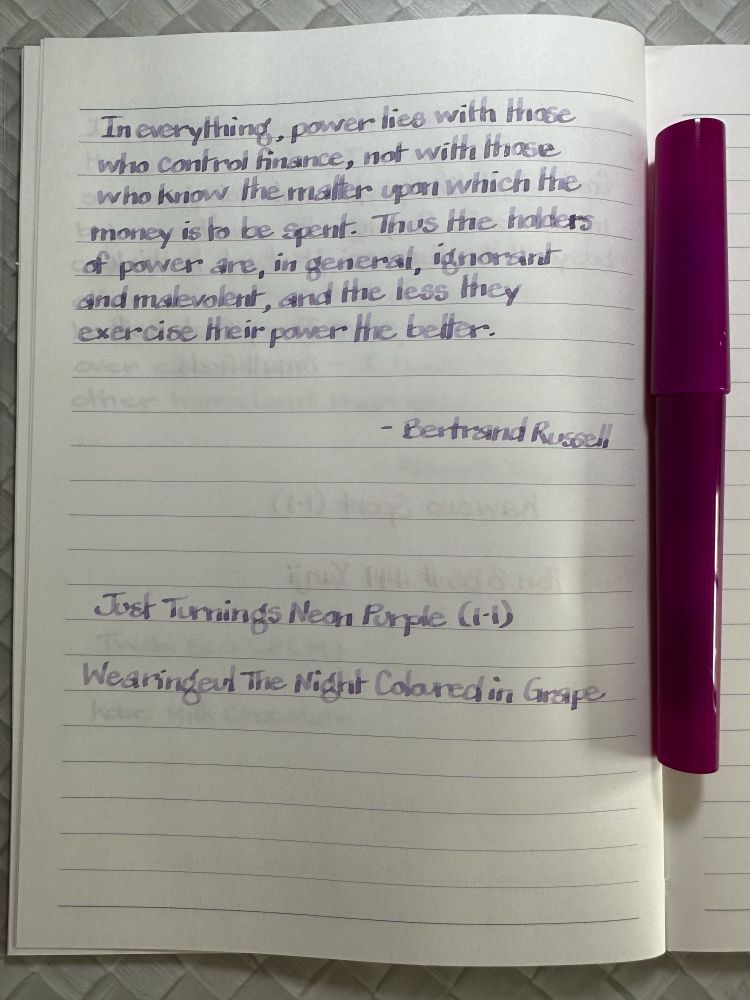 In everything, power lies with those
who control finance, not with those
who know the matter upon which the
money is to be spent. Thus the holders
of power are, in general, ignorant
and malevolent, and the less they
exercise their power the better.
- Bertrand Russell
Just Turnings Neon Purple (1.1)
Wearingeul The Night Coloured in Grape